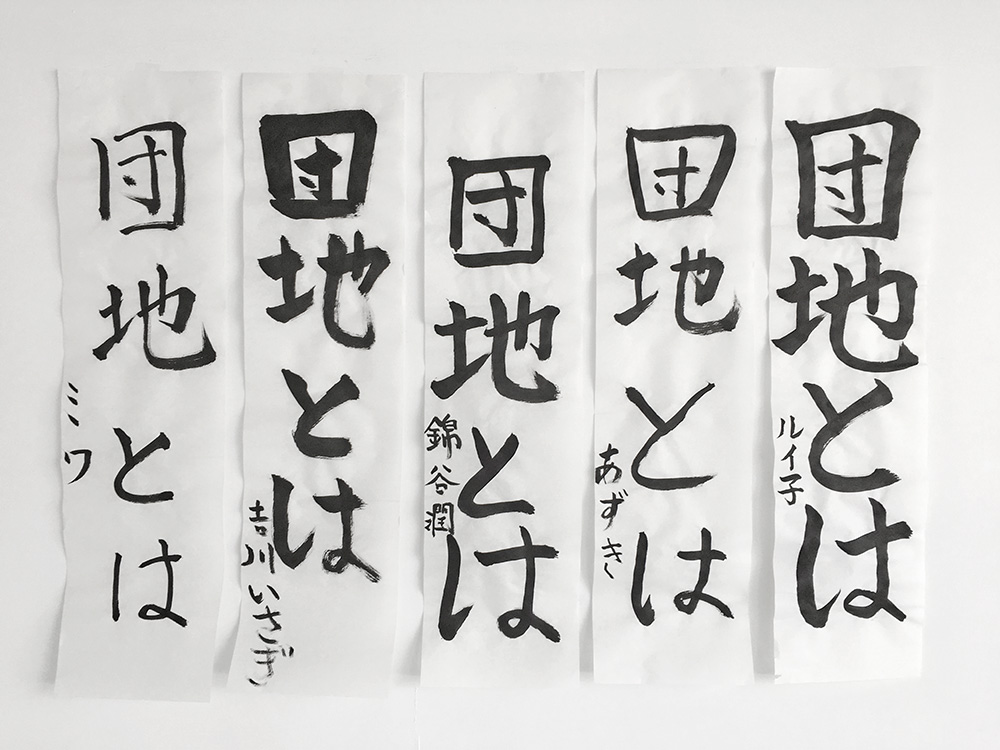 団地とは
ルイ子
団地とは
あずき
団地とは
錦谷潤
団地とは
吉川いさぎ
団地とは
ミワ